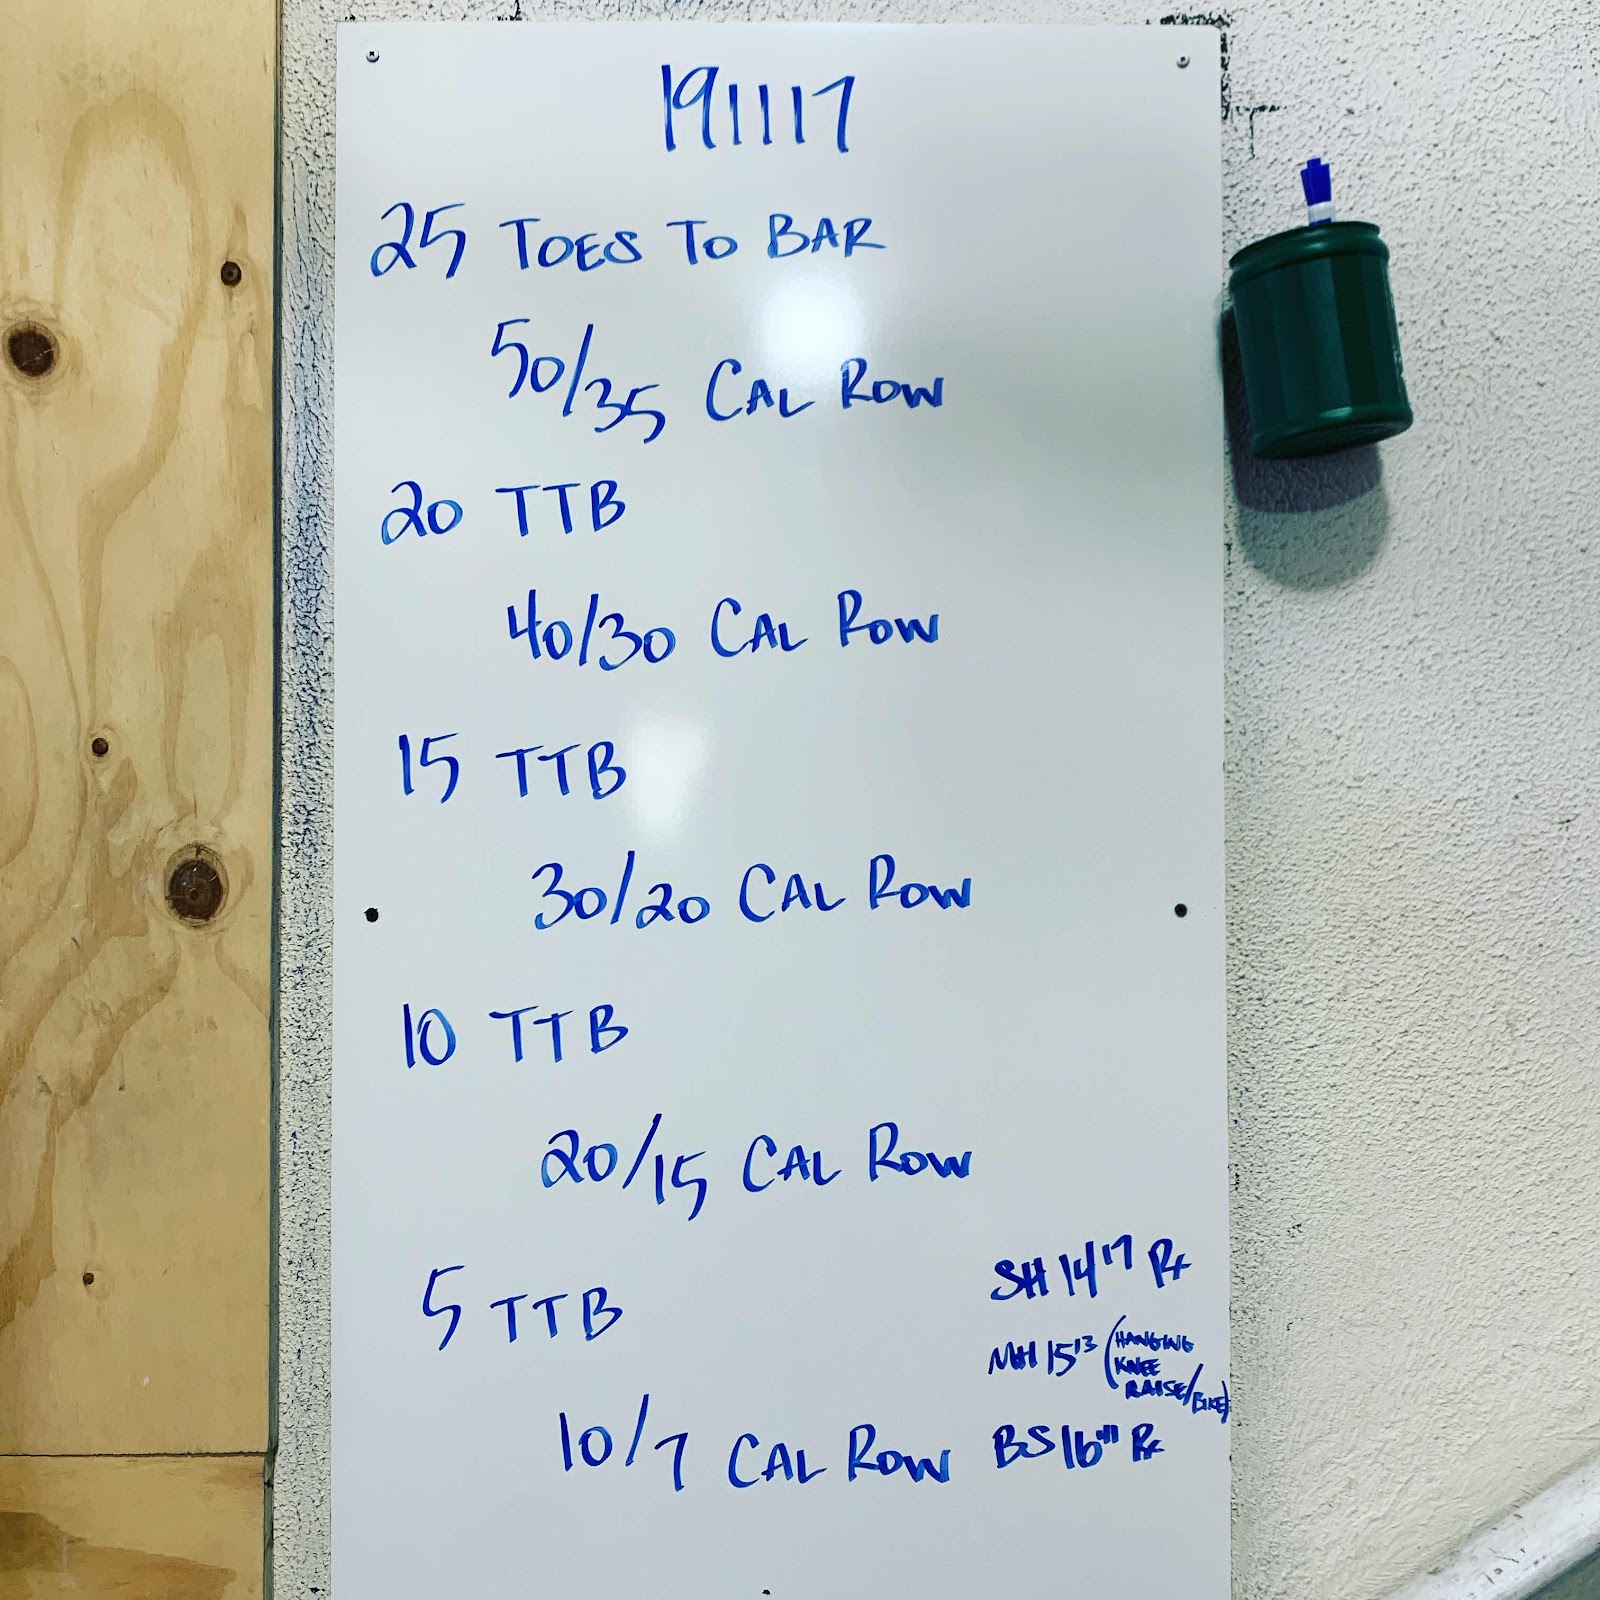 191117
25 TOES TO BAR
50/35 CAL ROW
20 TTB
40/30 CAL ROW
15 TTB
30/20 CAL ROW
10 TTB
20/15 CAL ROW
5 TTB
10/7 CAL ROW
SH 14 17 Rx
MH 15 13 (HANGING
KNEE
RAISE/BIKE)
BS 16 Rx